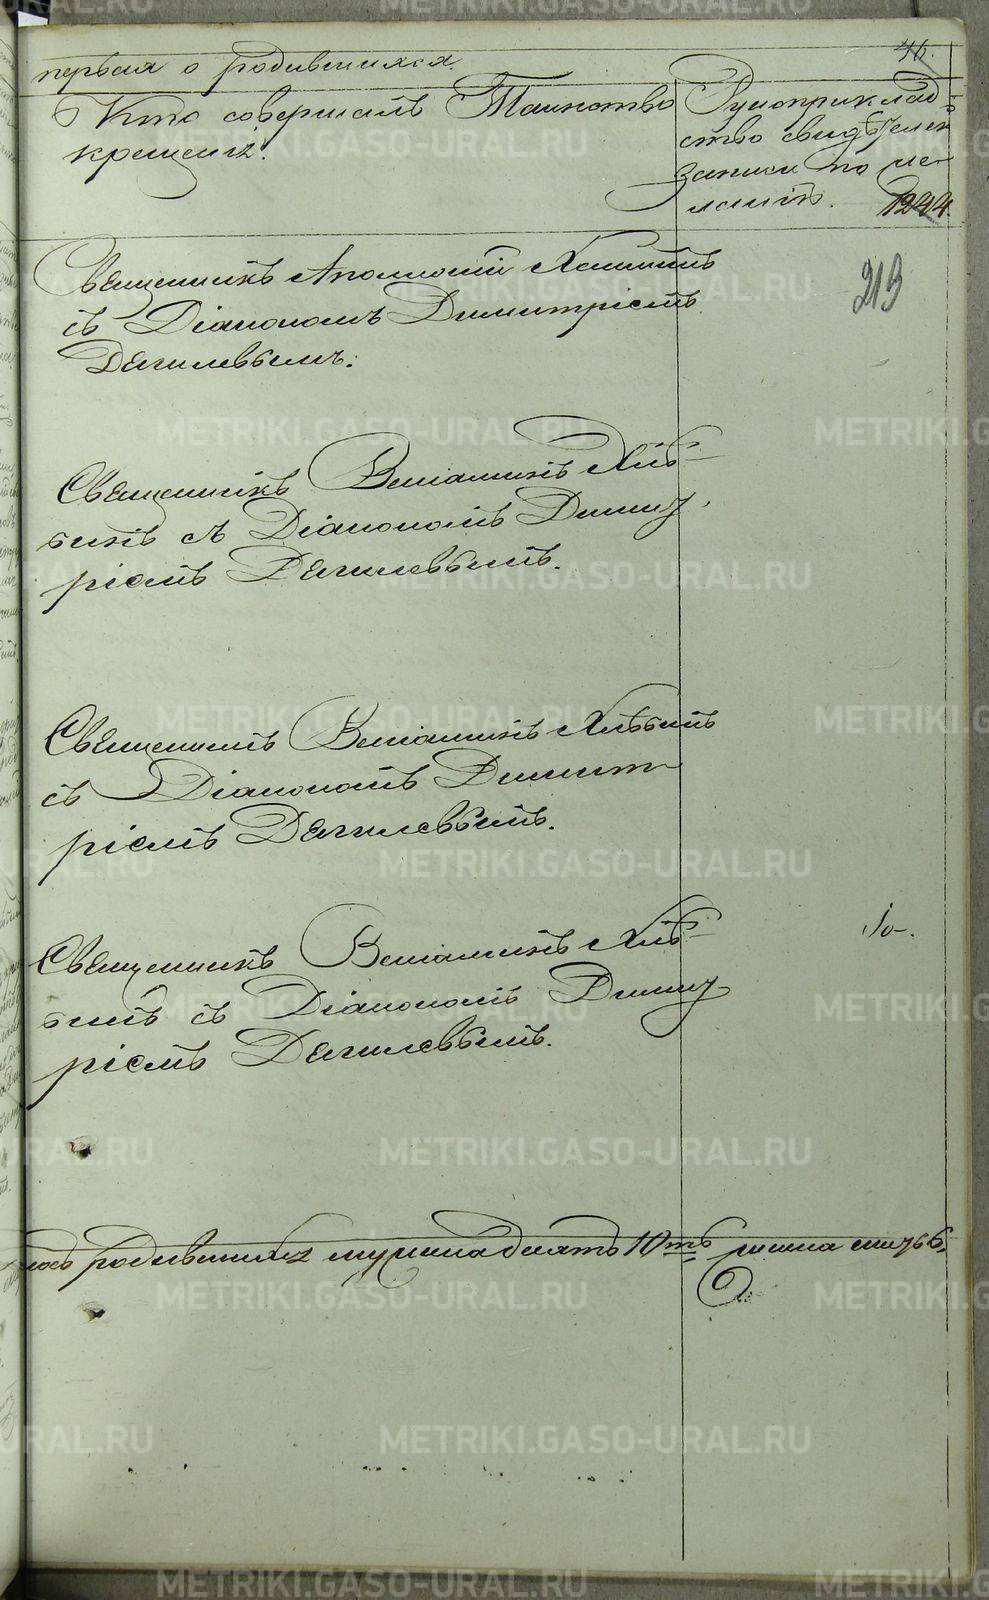 46.
первая о родившихся.
Кто совершалъ Таинство
крещенія.
Рукоприклад
ство свидѣтелей
записи по же
ланію. 1244.
Священникъ Аполлоній
съ Діакономъ Димитріемъ
Дягилевымъ.
213
Священникъ Веніаминъ Хлѣ-
бинъ съ Діакономъ Димит
ріемъ Дягилевымъ.
Священникъ Веніаминъ Хлѣбинъ
съ Діакономъ Димит-
ріемъ Дягилевымъ.
Священникъ Веніаминъ Хлѣ-
бинъ съ Діакономъ Димит
ріемъ Дягилевымъ.
родившихся 10ть
METRIKI.GASO-URAL.RU